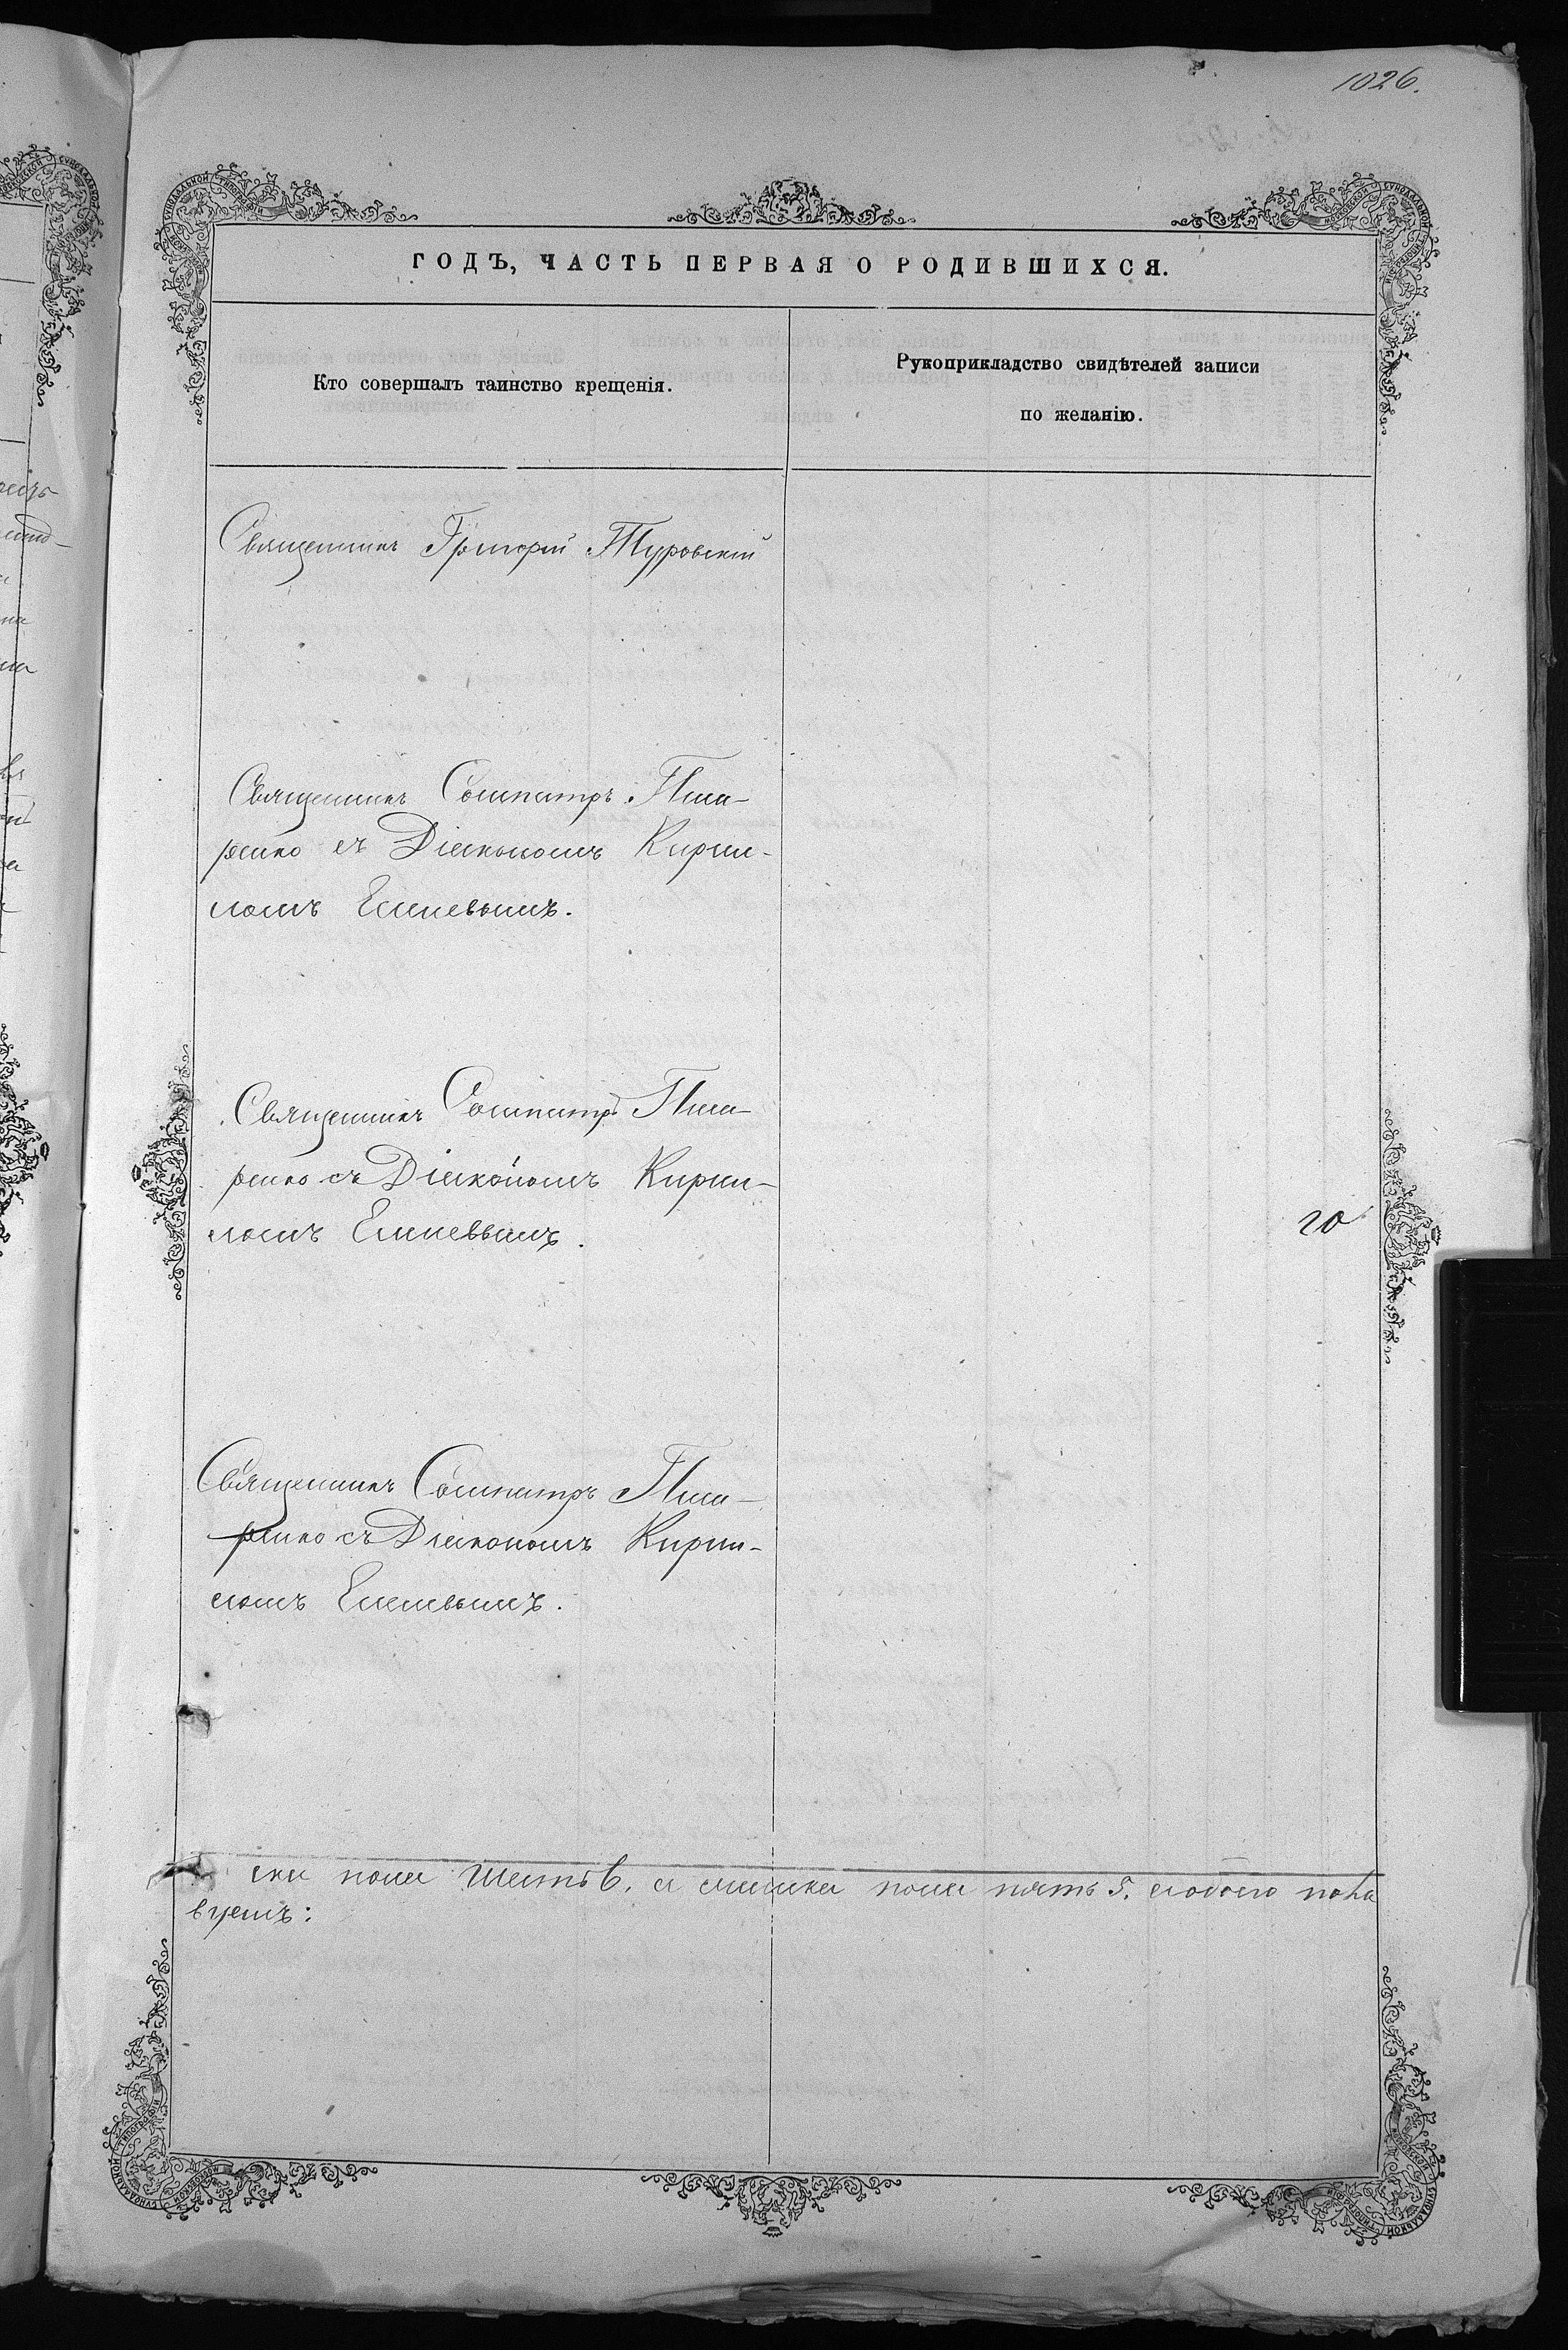 1026.
ГОДЪ, ЧАСТЬ ПЕРВАЯ О РОДИВШИХСЯ.
Кто совершалъ таинство крещенія.
Рукоприкладство свидѣтелей записи
по желанію.
Священникъ Григорій Туровскій
Священникъ Сосипатръ Писа-
ренко съ Діакономъ Кирил-
ломъ
Священникъ Сосипатръ Писа-
ренко съ Діакономъ Кирил-
ломъ
20
Священникъ Сосипатръ Писа-
ренко съ Діакономъ Кирил-
ломъ
ска пола шесть 6. а женска пола пять 5. обоего пола